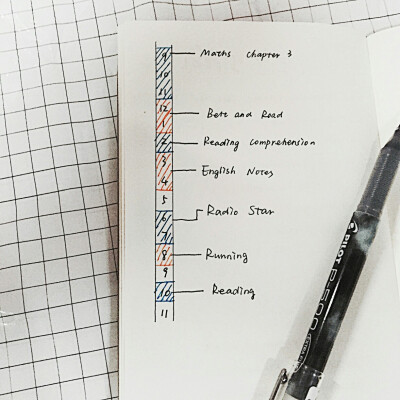 9 Maths Chapter 3
10
11
12
1 Bett and Read
2 Reading Comprehension
3 English Notes
4
5
6 Radio Star
7
8 Running
9
10 Reading
11
PILOT P-500